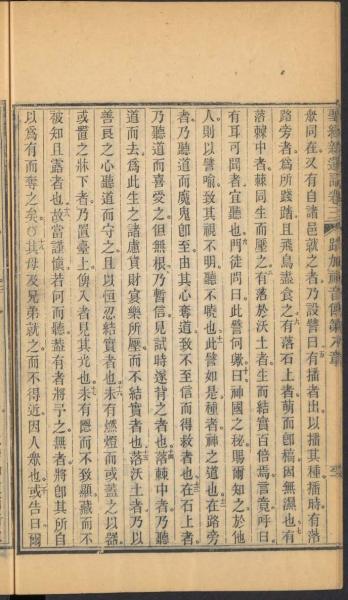 聖經新遺詔卷三 路加福音傳第八章
眾同在又有自諸邑就之者乃設譬曰有播者出以播其種播時有落
路旁者為所踐踏且飛鳥盡食之有落石上者萌而卽槁因無濕也有
落棘中者棘同生而壓之有落於沃土者生而結實百倍焉言竟呼曰
有耳可聞者宜聽也門徒問曰此譬何歟曰神國之秘賜爾知之於他
人則以譬喻致其視不明聽不曉也此譬如是種者神之道也在路旁
者乃聽道而魔鬼卽至由其心奪道致不至信而得救者也在石上者
乃聽道而喜受之但無根乃暫信見試時遂背之者也落棘中者乃聽
道而去為此生之諸慮貨財宴樂所壓而不結實者也落沃土者乃以
善良之心聽道而守之且以恒忍結實者也未有燃燈而或蓋之以器
或置之牀下者乃置臺上俾入者見其光也未有隱而不致顯藏而不
被知且露者也故當謹懷若何而聽蓋有者將予之無者將卽其所自
以為有而奪之矣○其母及兄弟就之而不得近因人眾也或告曰爾